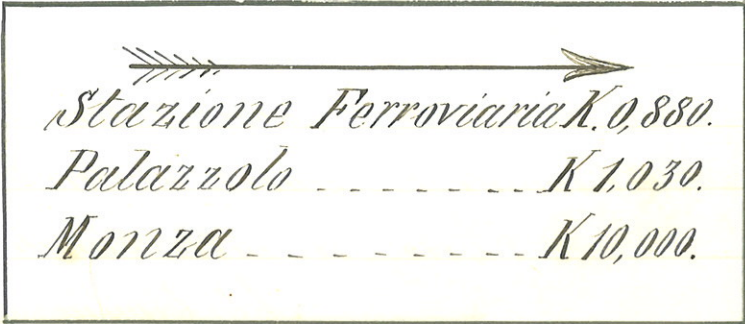 Stazione Ferroviaria K. 0,880.
Palazzolo -------- K 1,030.
Monza --------- K 10,000.